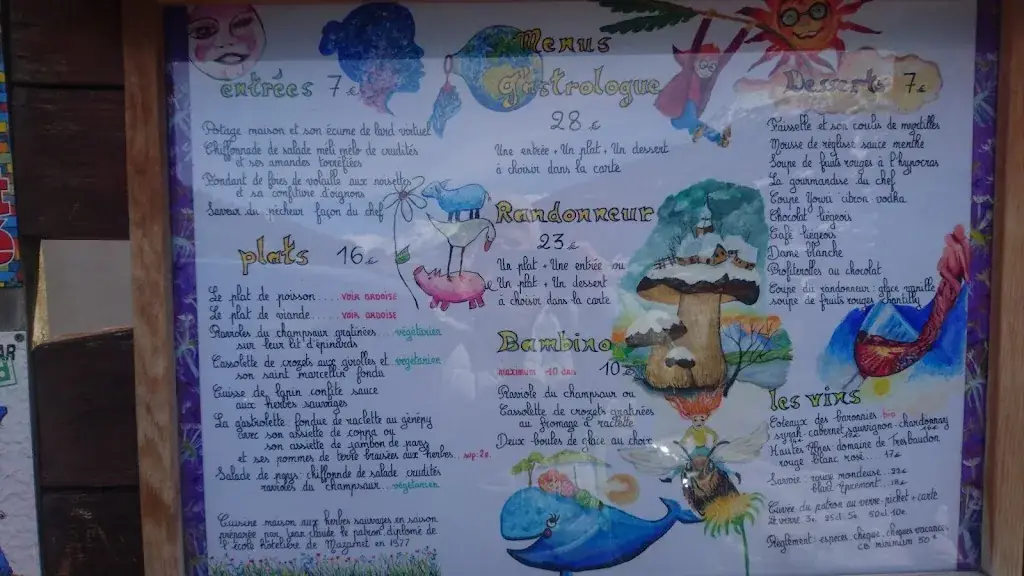 entrées 7€
Potage maison et son écume de lard virtuel
Chiffonnade de salade méli mélo de crudités
et ses amandes torréfiées
Fondant de foies de volaille aux noisettes
et sa confiture d'oignons
Saveur du pêcheur façon du chef
plats 16€
Le plat de poisson.... VOIR ARDOISE
Le plat de viande..... VOIR ARDOISE
Ravioles du champsaur gratinées... végétarien
sur leur lit d'épinards
Cassolette de crozets aux girolles et végétarien
son saint marcellin fondu
Cuisse de lapin confite sauce
aux herbes sauvages
La gastrolette: fondue de raclette au génépy
avec son assiette de coppa ou
son assiette de jambon de pays
et ses pommes de terre braisées aux herbes.. sup: 2€
Salade de pays: chiffonnade de salade crudités
ravioles du champsaur... végétarien
Cuisine maison aux herbes sauvages en saison
préparée par Jean claude le patron diplômé de
l'école hôtelière de Mazamet en 1977
Menus
Gastrologue
28€
Une entrée + Un plat + Un dessert
à choisir dans la carte
Randonneur
23€
Un plat + Une entrée ou
Un plat + Un dessert
à choisir dans la carte
Bambino
maximum 10 ans 10€
Raviole du champsaur ou
Cassolette de crozets gratinées
au fromage à raclette
Deux boules de glace au choix
Desserts 7€
Faisselle et son coulis de myrtilles
Mousse de réglisse sauce menthe
Soupe de fruits rouges à l'hypocras
La gourmandise du chef
Coupe Youri citron vodka
Chocolat liégeois
Café liégeois
Dame blanche
Profiterolles au chocolat
Coupe du randonneur: glace vanille
soupe de fruits rouges chantilly
les vins
Coteaux des baronnies bio
syrah cabernet sauvignon chardonnay
Hautes Alpes domaine de Tresbaudon
rouge blanc rosé.... 17€
Savoie: rouge mondeuse..22€
blanc apremont...18€
Cuvée du patron au verre pichet + carte
Le verre 3€ 25cl 5€ 50cl 10€
Réglement: espèces, chèque, chèques vacances
CB minimum 50€